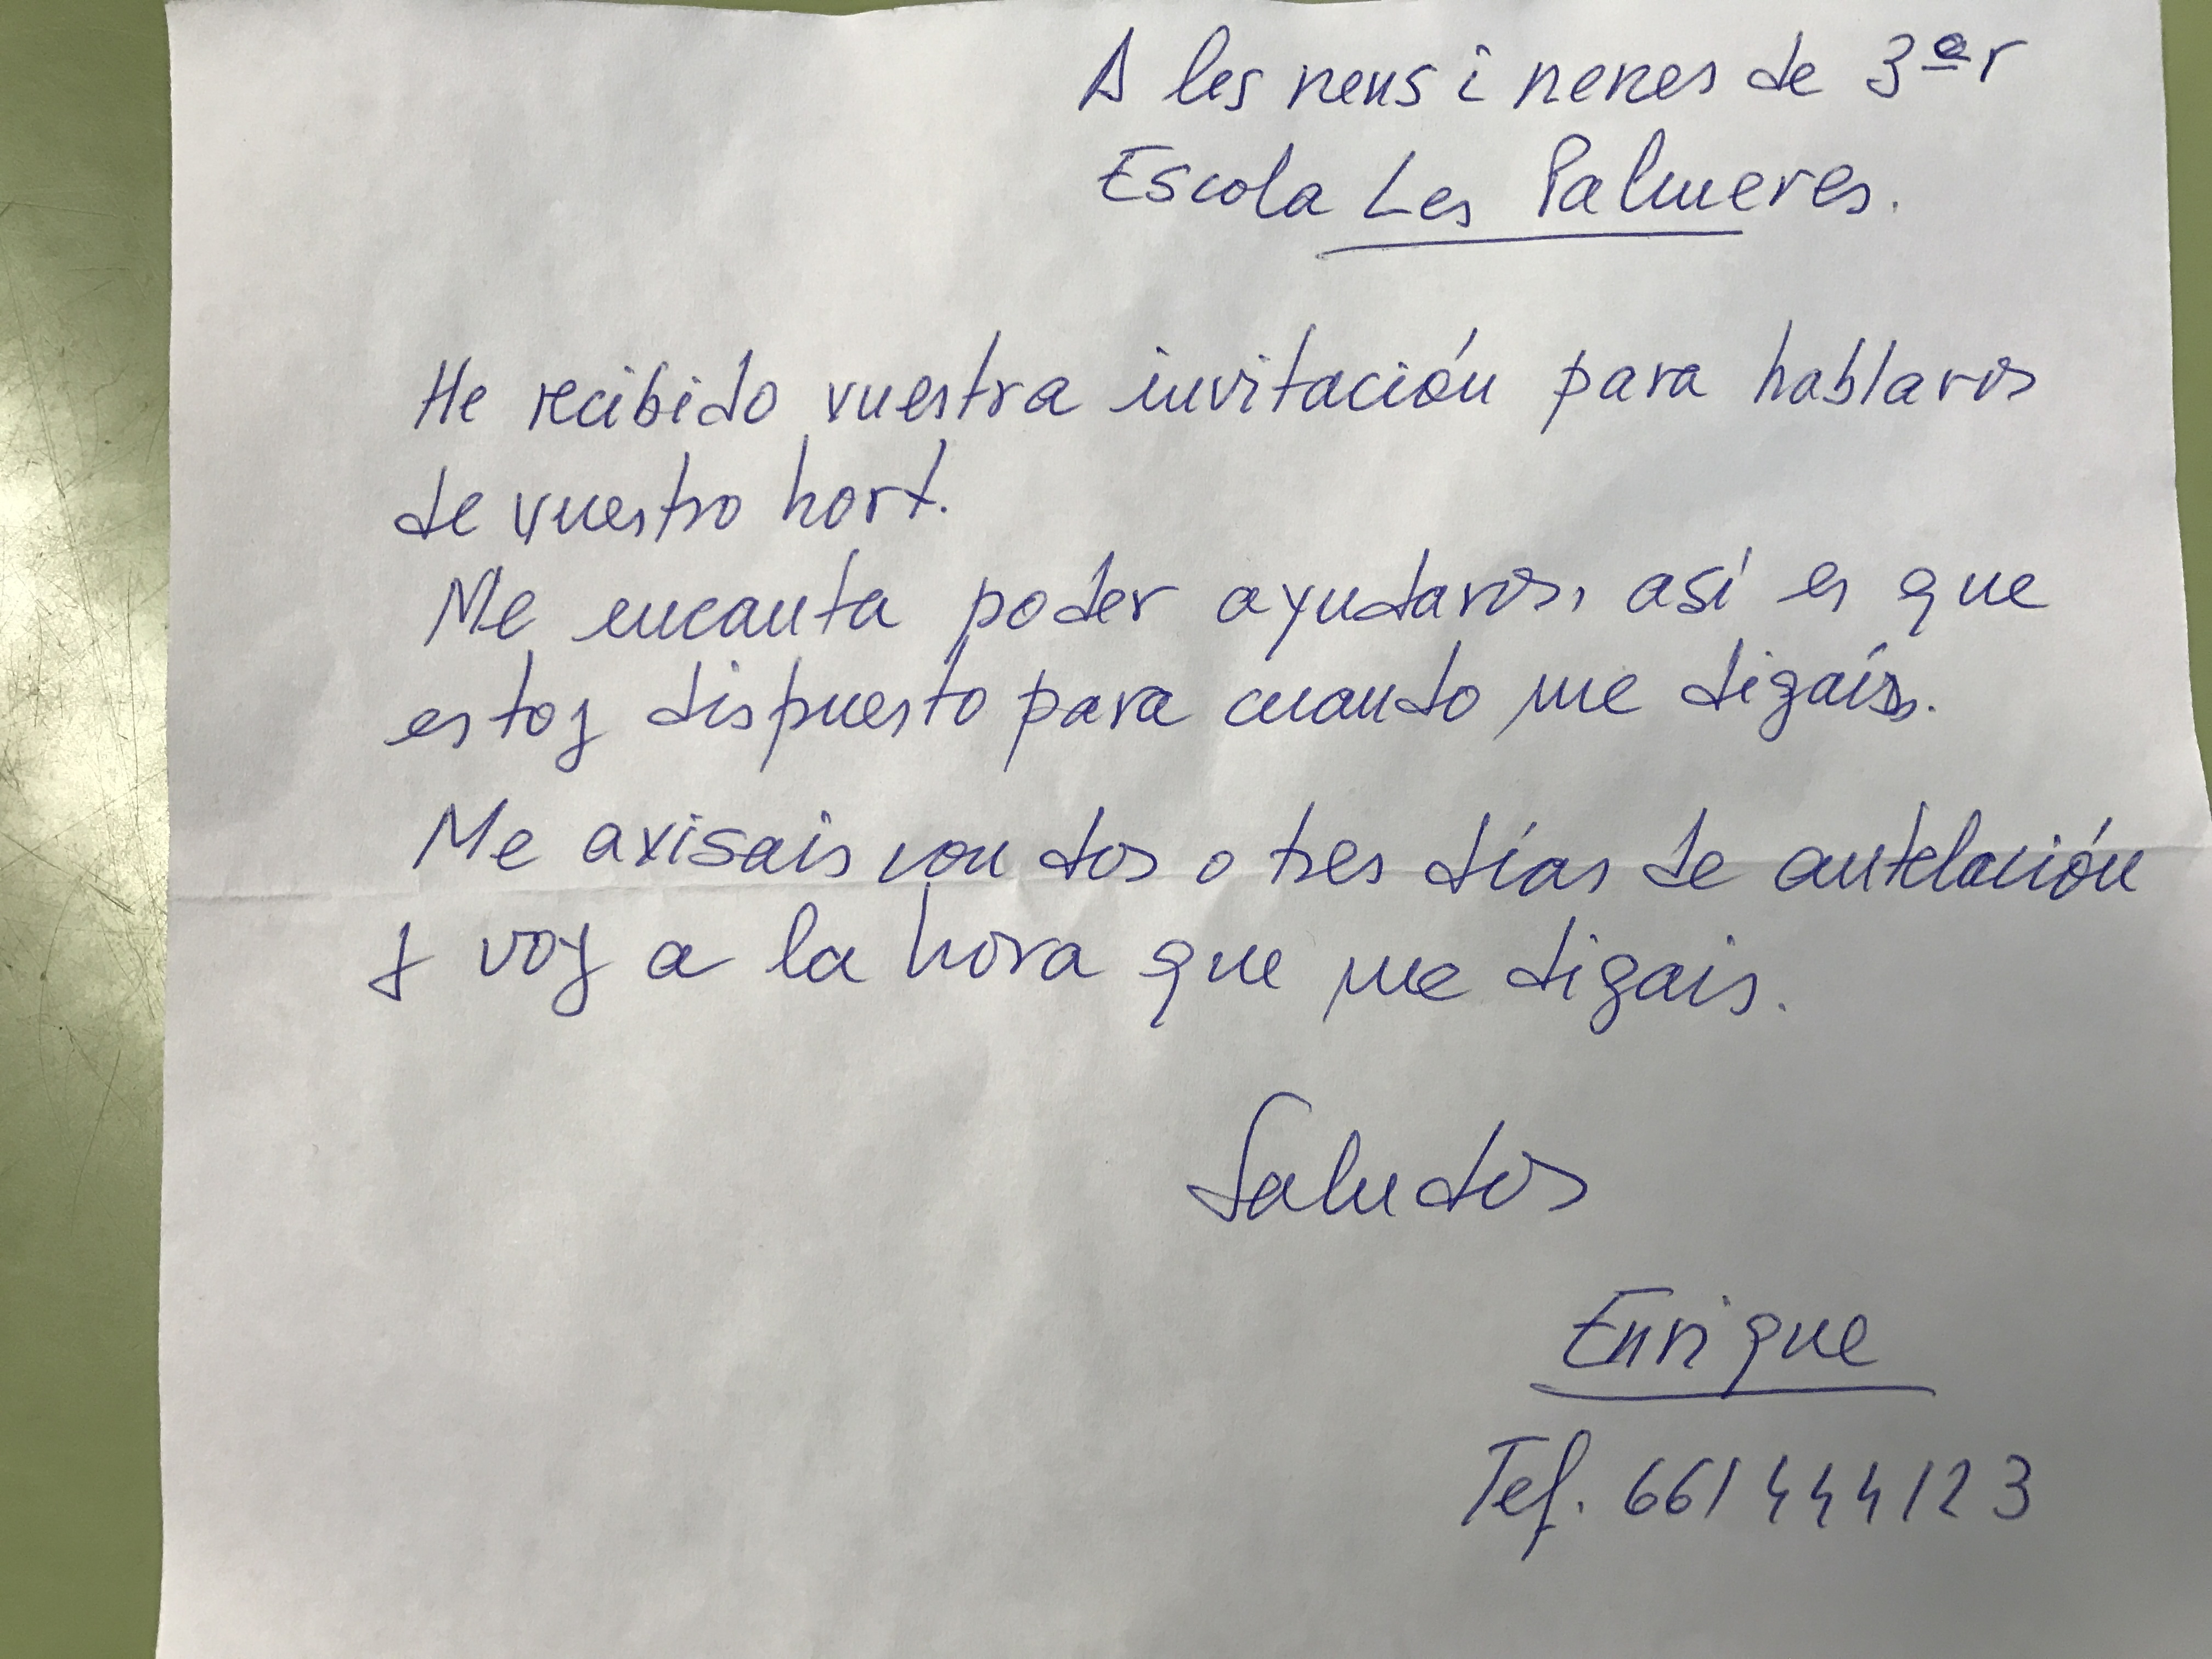 A les nens i nenes de 3er
Escola Les Palmeres.
He recibido vuestra invitación para hablaros
de vuestro hort.
Me encanta poder ayudaros, así es que
estoy dispuesto para cuando me digaís.
Me avisais con dos o tres días de antelación
y voy a la hora que me digais.
Saludos
Enrique
Tef. 661444123